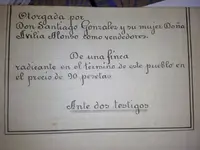 Otorgada por
Don Santiago Gonzales y su mujer Doña
Avilia Alonso como vendedores.
De una finca
radicante en el termino de este pueblo en
el precio de 90 pesetas
Ante dos testigos